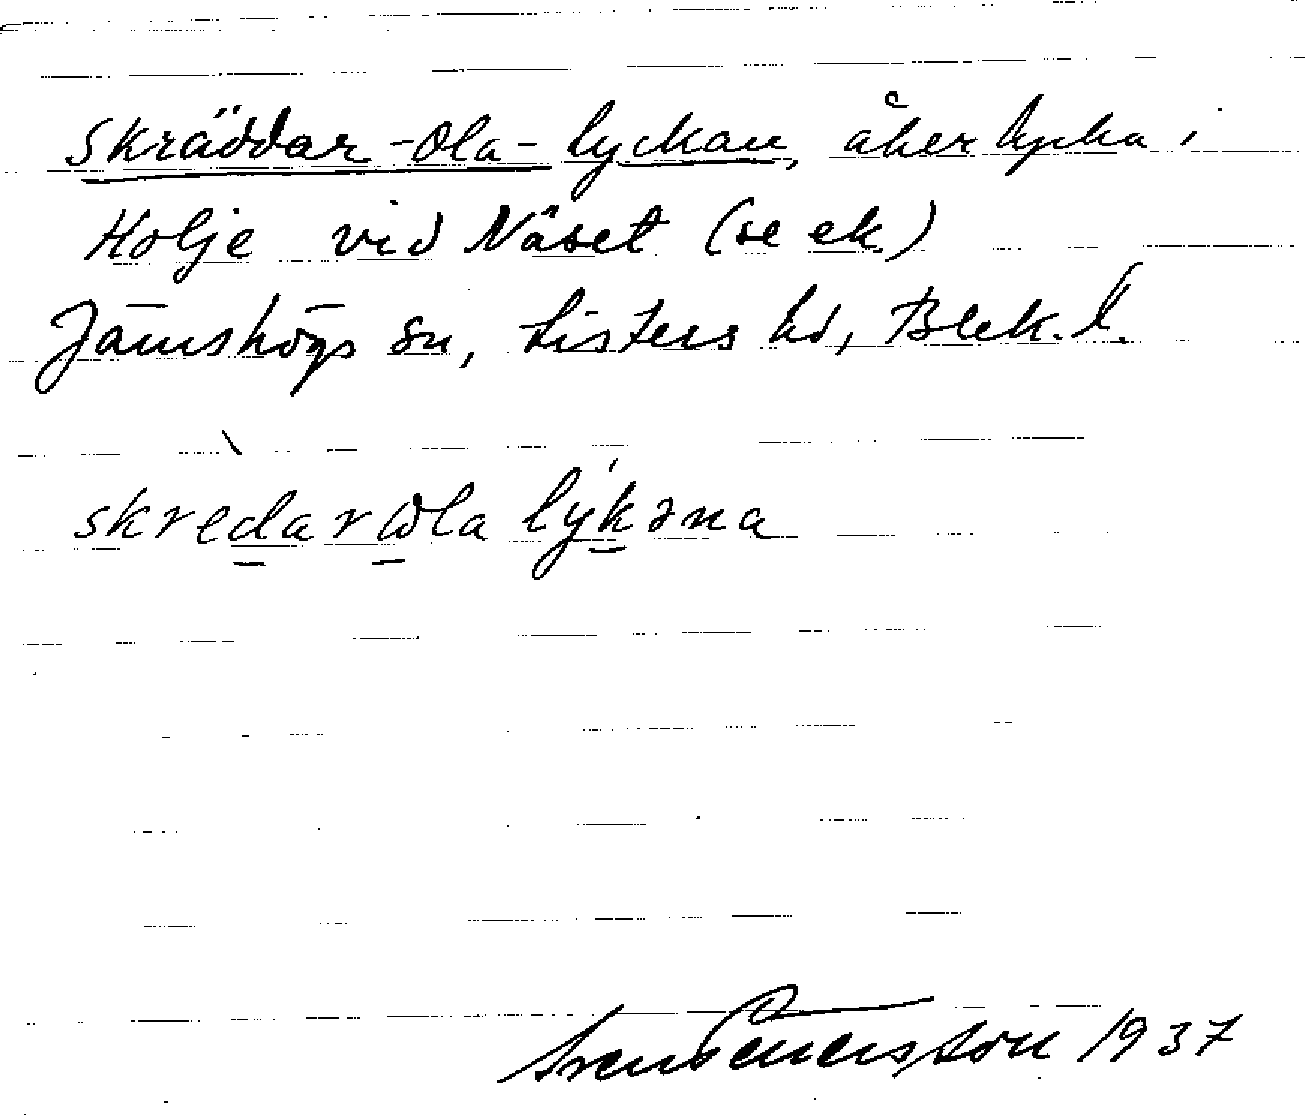 Skräddar-Ola-lyckan, åkerlycka i
Holje vid Näset (se ek)
Jämshögs sn, Listers hd, Blek. l.
skrèdarωla lýkəna
Sven Benersson 1937